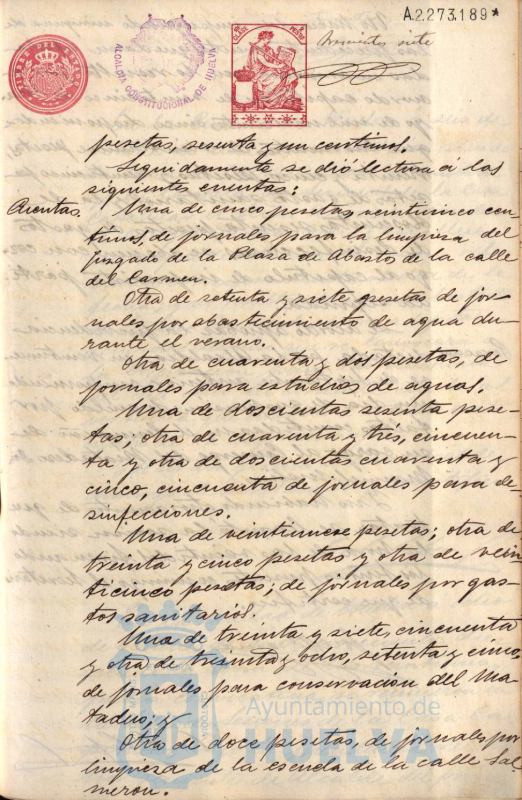 A.2.273.189*
TIMBRE DEL ESTADO
ALCALDIA CONSTITUCIONAL DE HUELVA
siete
pesetas, sesenta y un centimos.
Seguidamente se dió lectura á las
siguientes cuentas:
Cuentas.
Una de cinco pesetas, veinticinco cen-
timos, de jornales para la limpieza del
Juzgado de la Plaza de Abastos de la calle
del Carmen.
Otra de setenta y siete pesetas de jor-
nales por abastecimiento de agua du-
rante el verano.
Otra de cuarenta y dos pesetas, de
jornales para estudios de aguas.
Una de doscientas sesenta pese-
tas; otra de cuarenta y trés, cincuen-
ta y otra de doscientas cuarenta y
cinco, cincuenta de jornales para de-
sinfecciones.
Una de veintinueve pesetas; otra de
treinta y cinco pesetas y otra de vein-
ticinco pesetas; de jornales por gas-
tos sanitarios.
Una de treinta y siete, cincuenta
y otra de treinta y ocho, setenta y cinco,
de jornales para conservacion del Ma-
tadero; y
Otra de doce pesetas, de jornales por
limpieza de la escuela de la calle Sal-
meron.
Ayuntamiento de
HUELVA